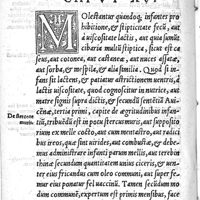 CAPVT XVI
Molestantur quandoq; infantes pro
hibitione, & stipticitate fecū, aut
à uiscositate lactis, aut quia sumit
cibaria multū stiptica, sicut est ca
seus, aut cotonea, aut castaneæ, aut nuces assatæ,
aut sorba, & mespila, & alia similia. Quod si in
fans sit lactens, & patiatur astrictionem uentris, à
lactis uiscositate, quod cognoscitur in nutrice, aut
ratione cibariorum, & secundū sententiā Auicē
næ, tertia primi, capite de ægritudinibus infan
De stercore
muris.
tiū, tribuēdū est in pocu stercus muris, aut supposito
rium ex melle cocto, aut cum mentastro, aut radici
bus ireos, quæ sint uiridæ, aut combustæ, & debe
mus administrare infanti parum mellis, aut terebin
thinæ secundum quantitatem unius ciceris, & uen
ter eius fricandus cum oleo communi, aut super fe
mur eius ponatur fel uaccinū. Tamen secūdum mo
dum communē, expertum est primis mensibus, face